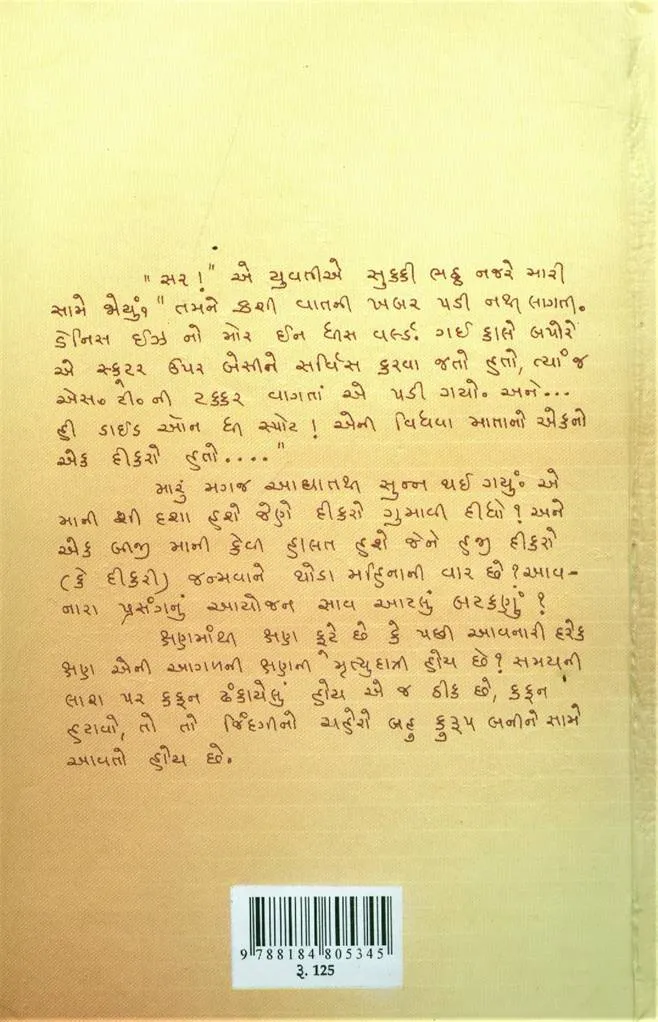 "સર!" એ યુવતીએ સુક્કી ભઠ્ઠ નજરે મારી
સામે જોયું. "તમને કશી વાતની ખબર પડી નથી લાગતી.
ડેનિસ ઈઝ નો મોર ઈન ધીસ વર્લ્ડ. ગઈ કાલે બપોરે
એ સ્કુટર ઉપર બેસીને સર્વિસ કરવા જતો હતો, ત્યાં જ
એસ. ટી. ની ટક્કર વાગતાં એ પડી ગયો. અને...
હી ડાઇડ ઑન ધી સ્પોટ! એની વિધવા માતાનો એકનો
એક દીકરો હતો...."
મારું મગજ આઘાતથી સુન્ન થઈ ગયું. એ
માની શી દશા હશે જેણે દીકરો ગુમાવી દીધો? અને
એક બીજી માની કેવી હાલત હશે જેને હજી દીકરો
(કે દીકરી) જન્મવાને થોડા મહિનાની વાર છે? આવ-
નારા પ્રસંગનું આયોજન સાવ આટલું બટકણું?
ક્ષણમાંથી ક્ષણ ફૂટે છે કે પછી આવનારી દરેક
ક્ષણ એની આગળની ક્ષણની મૃત્યુદાત્રી હોય છે? સમયની
લાશ પર કફન ઢંકાયેલું હોય એ જ ઠીક છે, કફન
હટાવો, તો તો જિંદગીનો ચહેરો બહુ કુરૂપ બનીને સામે
આવતો હોય છે.
9 788184 805345
રૂ. 125